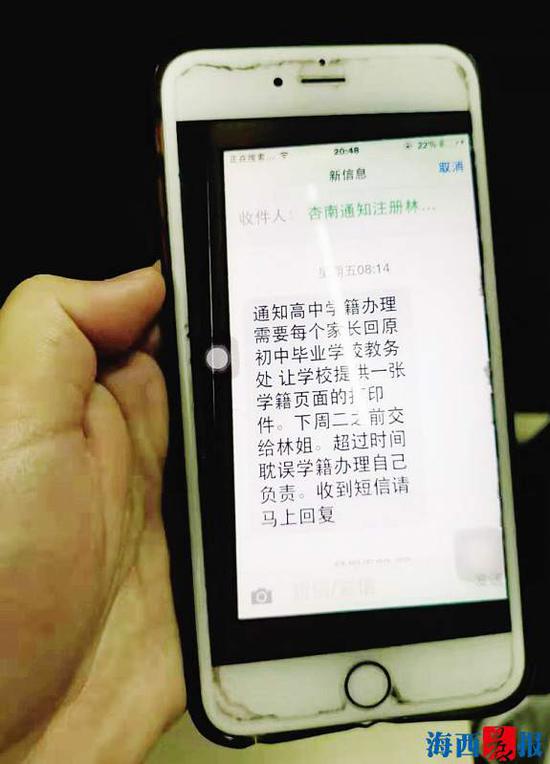 正在搜索...
20:48
22%
新信息
取消
收件人：
杏南通知注册林...
星期五08:14
通知高中学籍办理
需要每个家长回原
初中毕业学校教务
处 让学校提供一张
学籍页面的打印
件。下周二之前交
给林姐。超过时间
耽误学籍办理自己
负责。收到短信请
马上回复
短信/彩信
发送
海西晨报